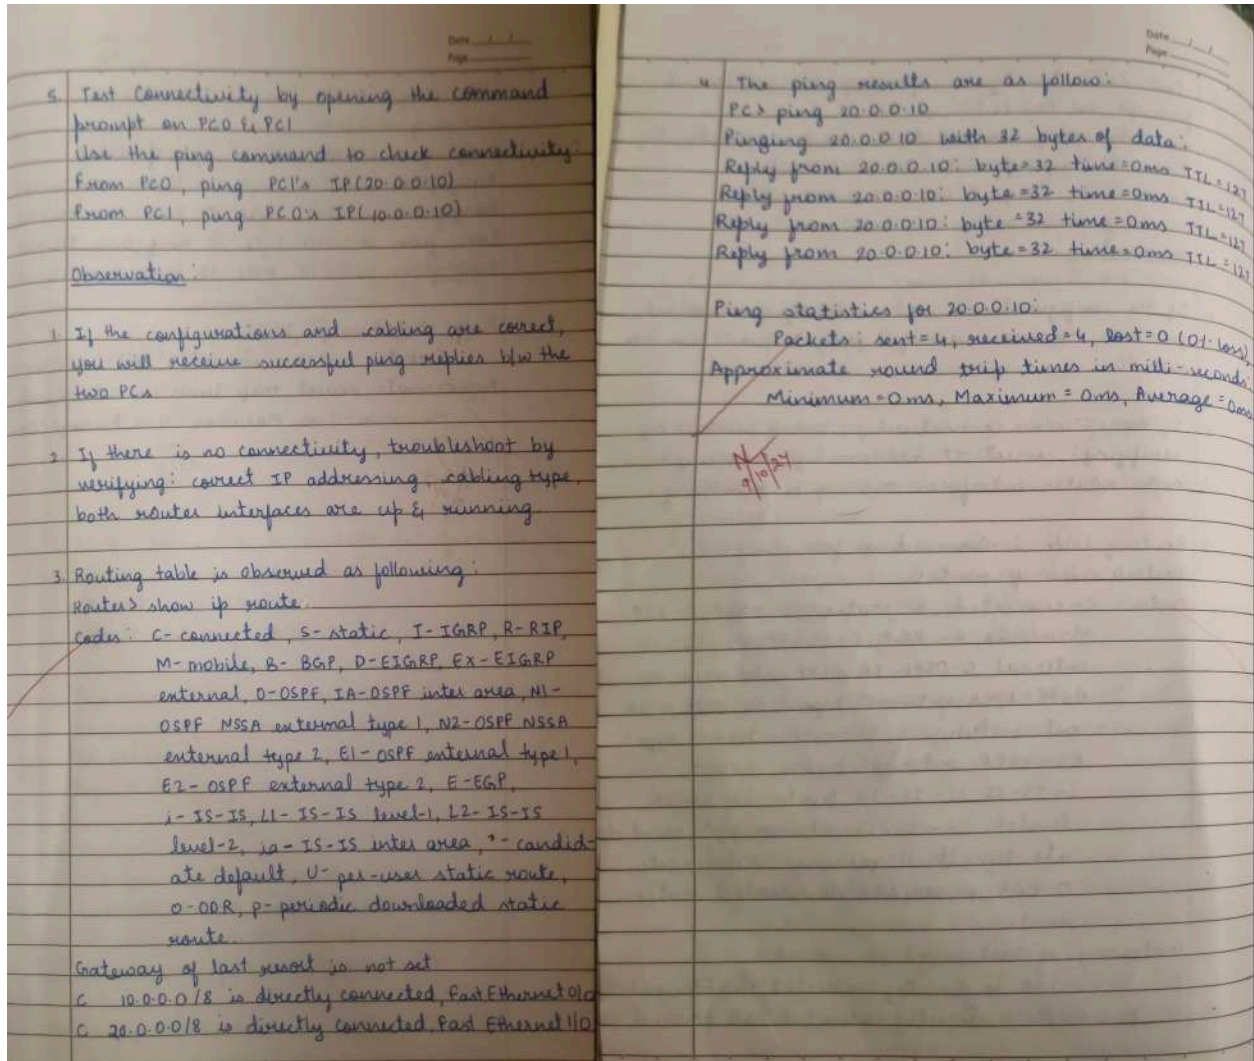 Date
Page
5. Test Connectivity by opening the command
prompt on PC0 & PC1
Use the ping command to check connectivity:
From PC0, ping PC1's IP (20.0.0.10)
From PC1, ping PC0's IP (10.0.0.10)
Observation:
1. If the configurations and cabling are correct,
you will receive successful ping replies b/w the
two PCs
2. If there is no connectivity, troubleshoot by
verifying: correct IP addressing, cabling type,
both router interfaces are up & running
3. Routing table is observed as following:
Router> show ip route.
Codes: C- connected, S- static, I- IGRP, R- RIP,
M- mobile, B- BGP, D- EIGRP, Ex- EIGRP
external, O- OSPF, IA- OSPF inter area, N1-
OSPF NSSA external type 1, N2- OSPF NSSA
external type 2, E1- OSPF external type 1,
E2- OSPF external type 2, E- EGP,
i- IS-IS, L1- IS-IS level-1, L2- IS-IS
level-2, ia- IS-IS inter area, *- candid-
ate default, U- per-user static route,
o- ODR, P- periodic downloaded static
route.
Gateway of last resort is not set
C 10.0.0.0/8 is directly connected, Fast Ethernet 0/0
C 20.0.0.0/8 is directly connected, Fast Ethernet 1/0
Date
Page
4 The ping results are as follow:
PC> ping 20.0.0.10
Pinging 20.0.0.10 with 32 bytes of data:
Reply from 20.0.0.10: byte=32 time=0ms TTL=127
Reply from 20.0.0.10: byte=32 time=0ms TTL=127
Reply from 20.0.0.10: byte=32 time=0ms TTL=127
Reply from 20.0.0.10: byte=32 time=0ms TTL=127
Ping statistics for 20.0.0.10:
Packets: sent=4, received=4, lost=0 (0% loss),
Approximate round trip times in milli-seconds:
Minimum=0ms, Maximum=0ms, Average=0ms
9/10/24